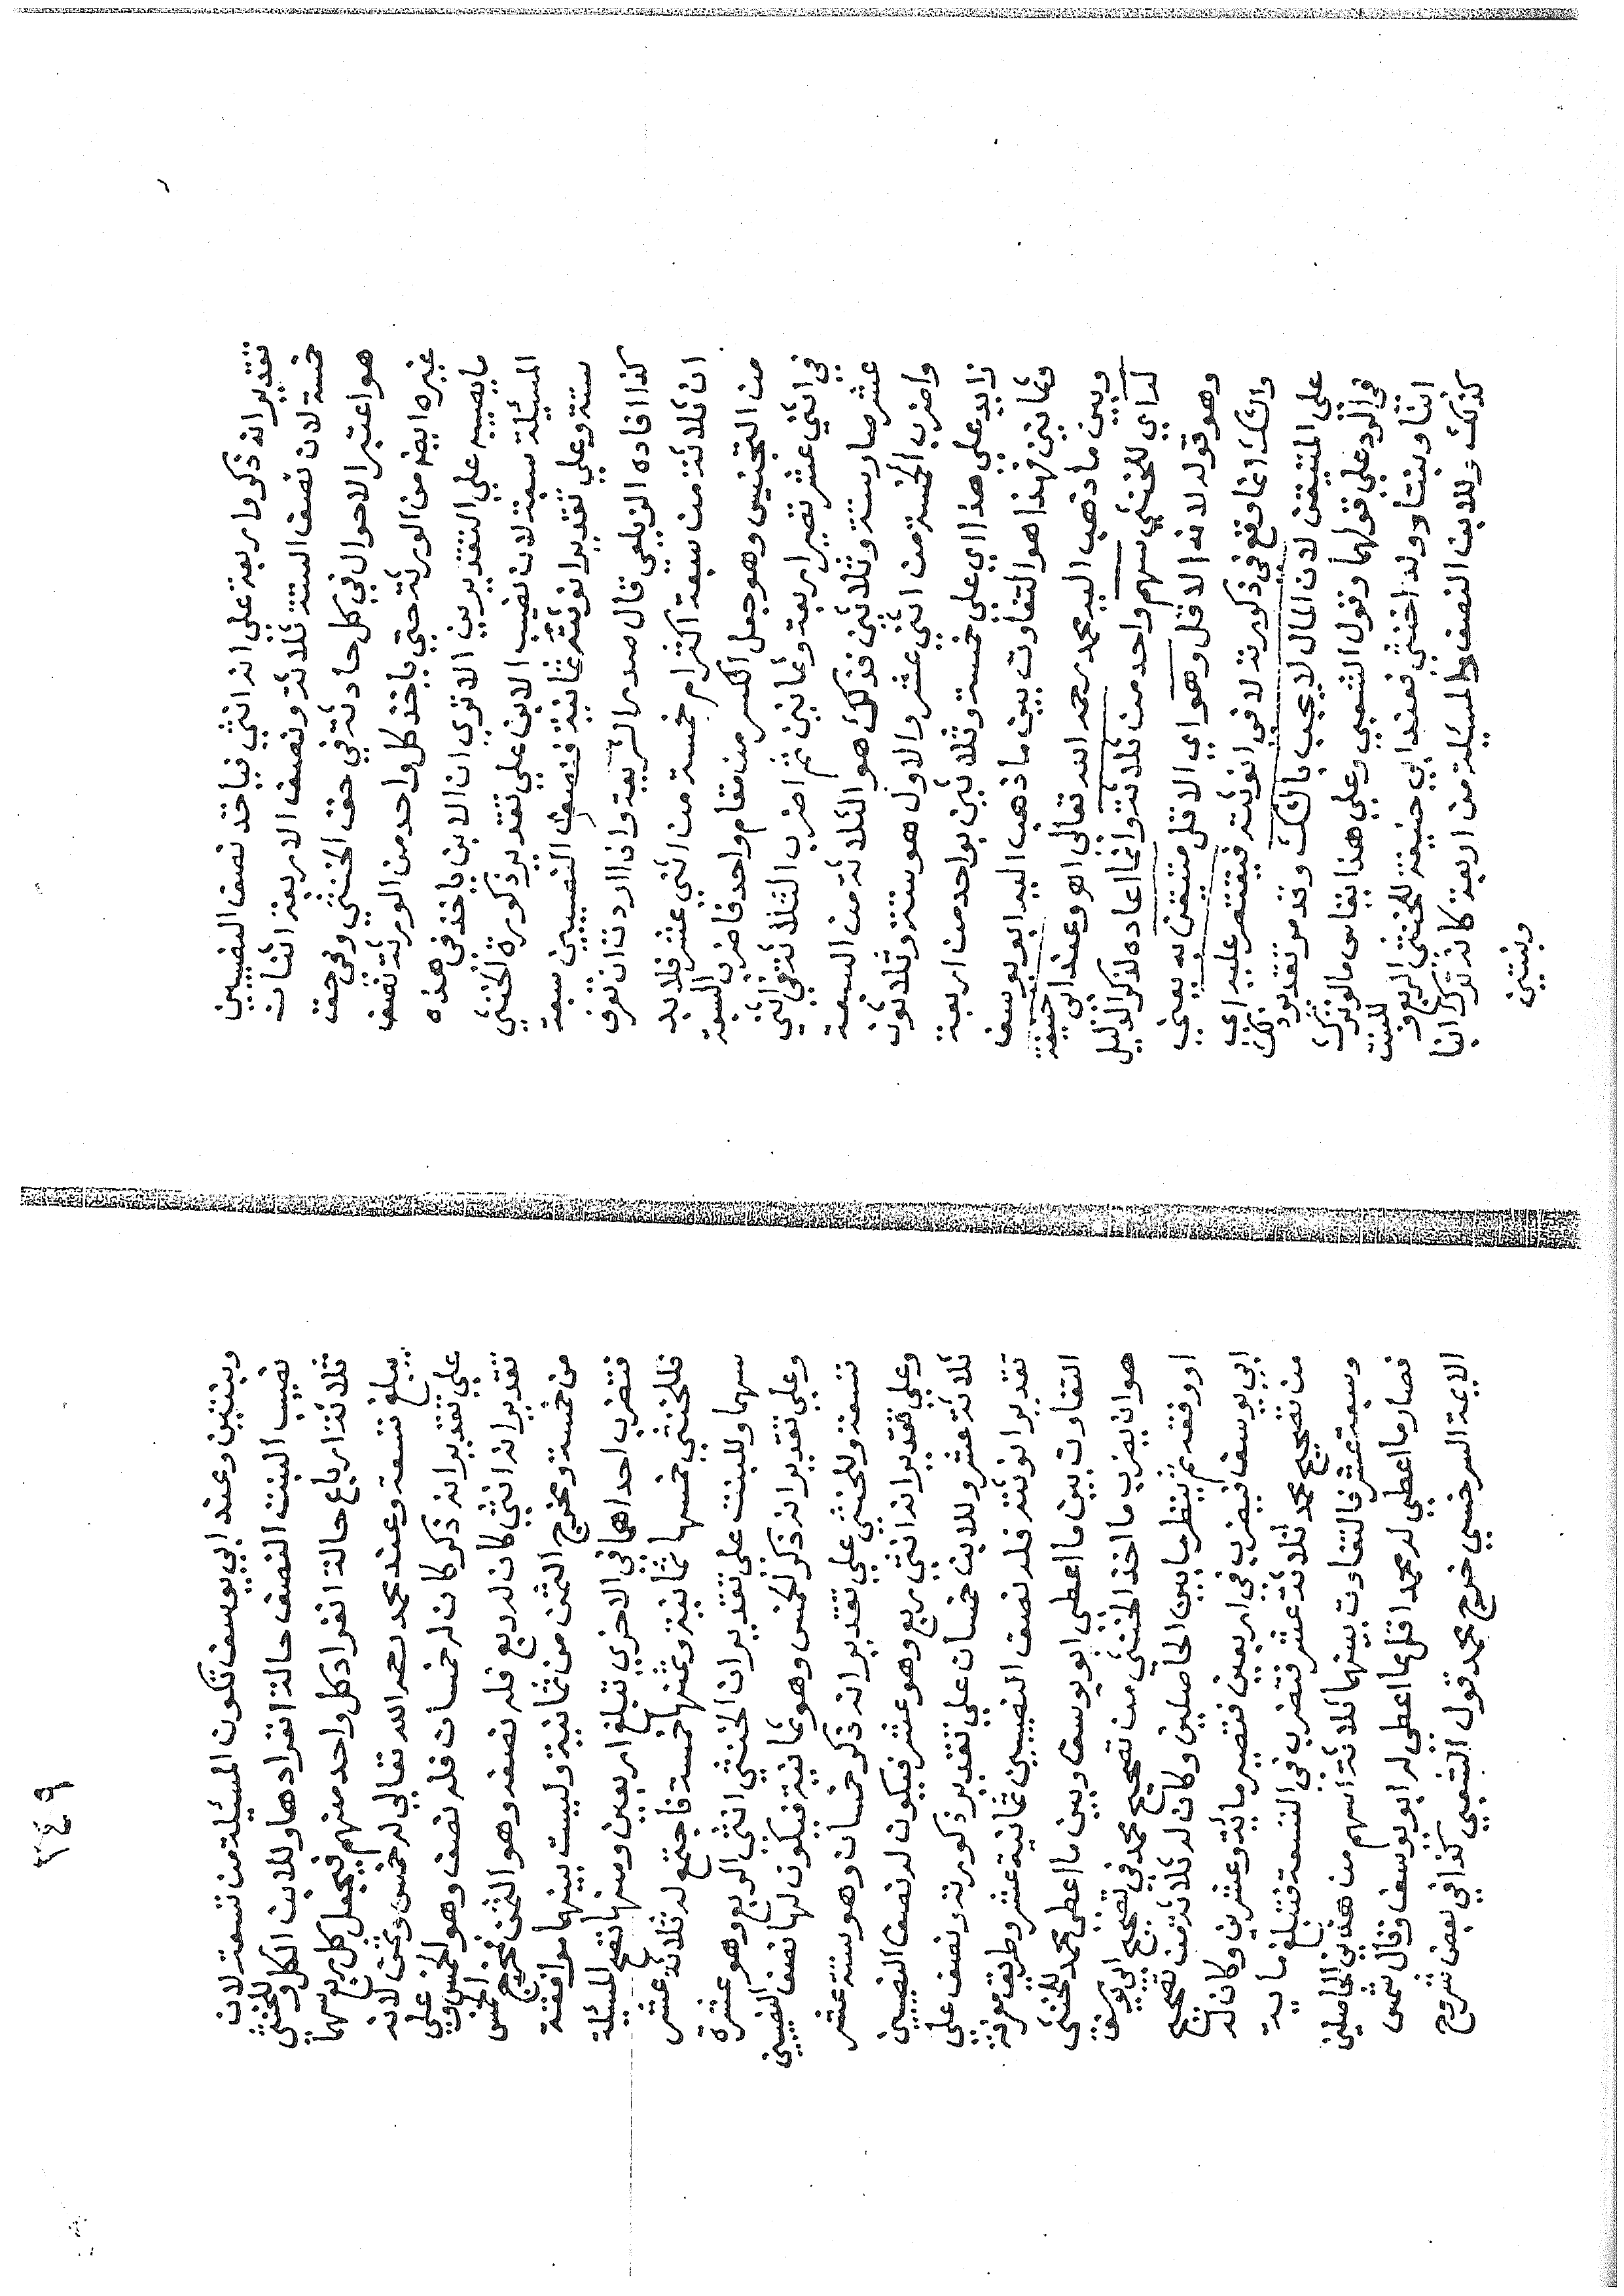 تقديرانه ذكروا ربعة على انه انثي فياخذ نصف النصيبين
خمسة لان نصف الستة ثلاثة ونصف الاربعة اثنان
هو اعتبر الاحوال في كل حادثة في حق الخنثي وفي حق
غيره ايضا من الورثة حتي ياخذ كل واحد من الورثة نصف
ما يصيبه علي التقديرين الا تري ان الابن ياخذ في هذه
المسيلة سبعة لان نصيب الابن علي تقدير ذكورة الخنثي
ستة وعلي تقدير انوثته ثمانية فنصف النصيبين سبعة
كذا افاده الزيلعي قال صدر الشريعة واذا اردت ان تعرف
ان ثلاثة من سبعة اكثر ام خمسة من اثني عشر فلا بد
من التجنيس وهو جعل الكسر من مقام واحد فاضرب السبعة
في اثني عشر تصير اربعة وثمانين ثم اضرب الثلاثة في اثني
عشر صار ستة وثلاثين فذلك هو الثلاثة من السبعة
واضرب الخمسة من اثني عشر والاول هو ستة وثلاثون
زايد علي هذا اي علي خمسة وثلاثين بواحد من اربعة
وثمانين فهذا هو التفاوت بين ما ذهب اليه ابو يوسف
وبين ما ذهب اليه محمد رحمه الله تعالي اهو وعند ابي حنيفة
له اي للخنثي سهم واحد من ثلاثة وانما اعاده لذكر الدليل
وهو قوله لانه الاقل وهو اي الاقل متيقن به يعني
والشك انما وقع في ذكورته لا في انوثته فيقتصر عليه اي
على المتيقن لان المال لا يجب بالشك وقد مر تقديره
في الرد علي قولهما وقول الشعبي وعلي هذا يقاس ما لو ترك
ابنا وبنتا وولدا خنثي فعند ابي حنيفة للخنثي الربع و للبنت
كذلك وللابن النصف والمسيلة من اربعة كانه ترك ابنا
وبنتين
وبنتين وعند ابي يوسف تكون المسيلة من تسعة لان
نصيب البنت النصف حالة انفرادها وللابن الكل وللخنثي
ثلاثة ارباع حالة انفراد كل واحد منهم فيجعل كل ربع سهما
يبلغ تسعة وعند محمد رحمه الله تعالي له خمس وثمن لانه
علي تقدير انه ذكر كان له خمسان فله نصف وهو الخمس وعلي
تقدير انه انثي كان له ربع فله نصفه وهو الثمن فمخرج الخمس
من خمسة ومخرج الثمن من ثمانية وليست بينهما موافقة
فتضرب احداهما في الاخري تبلغ اربعين ومنها تصح المسئلة
فللخنثي خمسها ثمانية وثمنها خمسة فاجتمع له ثلاثة عشر
سهما وللبنت علي تقدير ان الخنثي انثي الربع وهو عشرة
وعلي تقدير انه ذكر الخمس وهو ثمانية فيكون لها نصف النصيبين
تسعة وللخنثي علي تقدير انه ذكر خمسان وهو ستة عشر
وعلي تقدير انه انثي ربع وهو عشر فيكون له نصف النصيبين
ثلاثة عشر وللابن خمسان علي تقدير ذكورته ونصف علي
تقدير انوثته فله نصف النصيبين ثمانية عشر وطريق معرفة
التفاوت بين ما اعطي ابو يوسف وبين ما اعطي محمد للخنثي
هو ان يضرب ما اخذ الخنثي من تصحيح محمد في تصحيح ابي يوسف
او وفقه ثم ينظر ما بين الحاصلين وكان له ثلاثة من تصحيح
ابي يوسف فيضرب في اربعين فتصير ماية وعشرين وكان له
من تصحيح محمد ثلاثة عشر فتضرب في التسعة فتبلغ ماية
وسبعة عشر فالتفاوت بينهما ثلاثة اسهم من هذين الحاصلين
فصار ما اعطي له محمد اقل مما اعطي له ابو يوسف وقال شمس
الايمة السرخسي خرج محمد قول الشعبي كذا في بعض شروح
٣٤٩